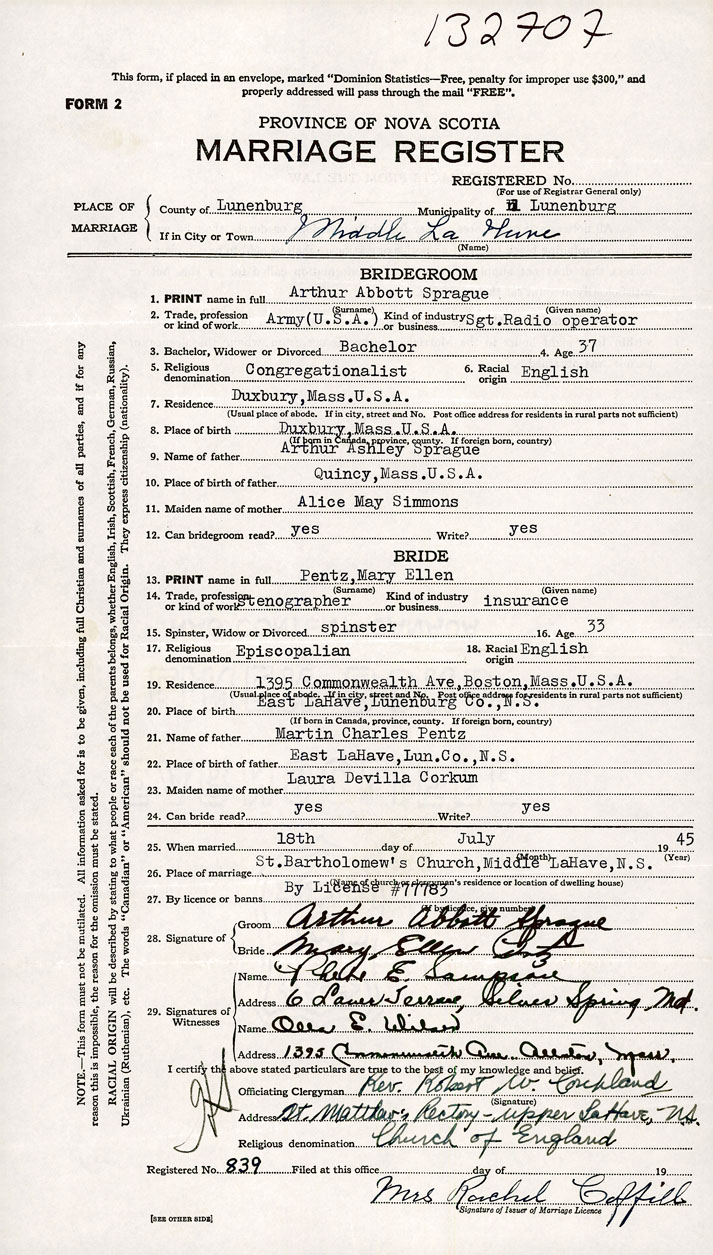 132707
This form, if placed in an envelope, marked "Dominion Statistics—Free, penalty for improper use $300," and
properly addressed will pass through the mail "FREE".
FORM 2
PROVINCE OF NOVA SCOTIA
MARRIAGE REGISTER
REGISTERED No.
(For use of Registrar General only)
PLACE OF MARRIAGE
County of Lunenburg Municipality of Lunenburg
If in City or Town Middle La Have
(Name)
BRIDEGROOM
1. PRINT name in full Arthur Abbott Sprague
(Surname) (Given name)
2. Trade, profession or kind of work Army(U.S.A.) Kind of industry or business Sgt.Radio operator
3. Bachelor, Widower or Divorced Bachelor 4. Age 37
5. Religious denomination Congregationalist 6. Racial origin English
7. Residence Duxbury,Mass.U.S.A.
(Usual place of abode. If in city, street and No. Post office address for residents in rural parts not sufficient)
8. Place of birth Duxbury,Mass.U.S.A.
(If born in Canada, province, county. If foreign born, country)
9. Name of father Arthur Ashley Sprague
10. Place of birth of father Quincy,Mass.U.S.A.
11. Maiden name of mother Alice May Simmons
12. Can bridegroom read? yes Write? yes
BRIDE
13. PRINT name in full Pentz,Mary Ellen
(Surname) (Given name)
14. Trade, profession or kind of work stenographer Kind of industry or business insurance
15. Spinster, Widow or Divorced spinster 16. Age 33
17. Religious denomination Episcopalian 18. Racial origin English
19. Residence 1395 Commonwealth Ave,Boston,Mass.U.S.A.
(Usual place of abode. If in city, street and No. Post office address for residents in rural parts not sufficient)
20. Place of birth East LaHave,Lunenburg Co.,N.S.
(If born in Canada, province, county. If foreign born, country)
21. Name of father Martin Charles Pentz
22. Place of birth of father East LaHave,Lun.Co.,N.S.
23. Maiden name of mother Laura Devilla Corkum
24. Can bride read? yes Write? yes
25. When married 18th day of July 1945
(Month) (Year)
26. Place of marriage St.Bartholomew's Church,Middle LaHave,N.S.
(Name of church or clergyman's residence or location of dwelling house)
27. By licence or banns By License #77783
(If by licence, give number)
28. Signature of
Groom Arthur Abbott Sprague
Bride Mary Ellen Pentz
29. Signatures of Witnesses
Name E. Sampson
Address 6 Terrace, Silver Spring Md.
Name E. Wilson
Address 1395 Commonwealth Ave. Allston, Mass.
I certify the above stated particulars are true to the best of my knowledge and belief.
Officiating Clergyman Rev. Robert W. Copeland
(Signature)
Address St. Matthew's Rectory - Upper LaHave, N.S.
Religious denomination Church of England
Registered No. 839 Filed at this office day of 19
Mrs Rachel Coffill
Signature of Issuer of Marriage Licence
[SEE OTHER SIDE]
NOTE.—This form must not be mutilated. All information asked for is to be given, including full Christian and surnames of all parties, and if for any
reason this is impossible, the reason for the omission must be stated.
RACIAL ORIGIN will be described by stating to what people or race each of the parents belongs, whether English, Irish, Scottish, French, German, Russian,
Ukrainian (Ruthenian), etc. The words "Canadian" or "American" should not be used for Racial Origin. They express citizenship (nationality).